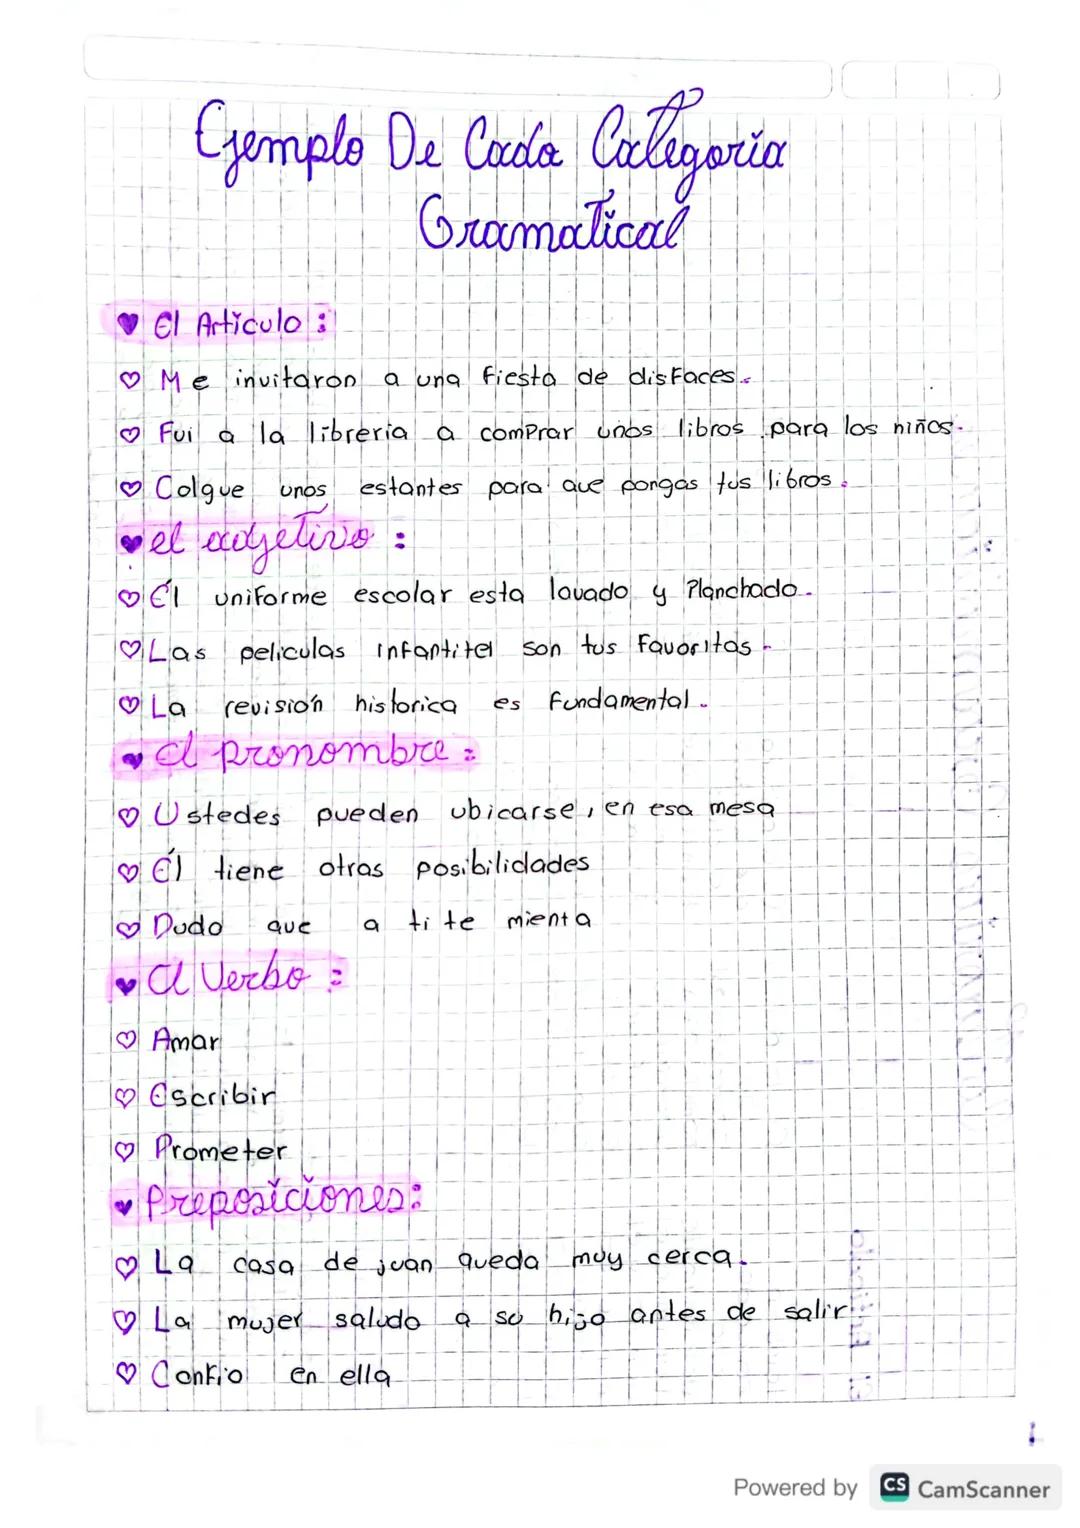 Ejemplo De Cada Categoría
Gramatical
El Artículo :
Me invitaron a una fiesta de disfaces.
Fui a la libreria a comprar unos libros para los niños.
Colgue unos estantes para que pongas tus libros.
el adjetivo :
Él uniforme escolar esta lavado y Planchado.
Las peliculas infantitel son tus favoritas.
La revisión historica es fundamental.
El pronombre :
Ustedes pueden ubicarse, en esa mesa
Él tiene otras posibilidades
Dudo que a ti te mienta
El Verbo :
Amar
Escribir
Prometer
Preposiciones:
La casa de juan queda muy cerca.
La mujer saludo a su hijo antes de salir
Confio en ella
Powered by CS CamScanner